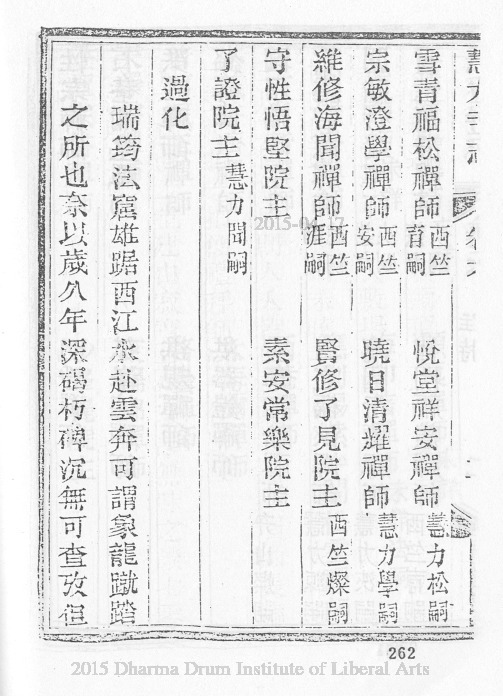 慧力寺志 卷六
雪青福松禪師 西竺育嗣 悅堂祥安禪師 慧力松嗣
宗敏澄學禪師 西竺安嗣 曉日清耀禪師 慧力學嗣
維修海聞禪師 西竺涯嗣 賢修了見院主 西竺燦嗣
守性悟堅院主 素安常樂院主
了證院主 慧力聞嗣
過化
瑞筠法窟雄踞西江水赴雲奔可謂象龍蹴踏
之所也奈以歲久年深碣朽碑沉無可查攷但
262
2015 Dharma Drum Institute of Liberal Arts